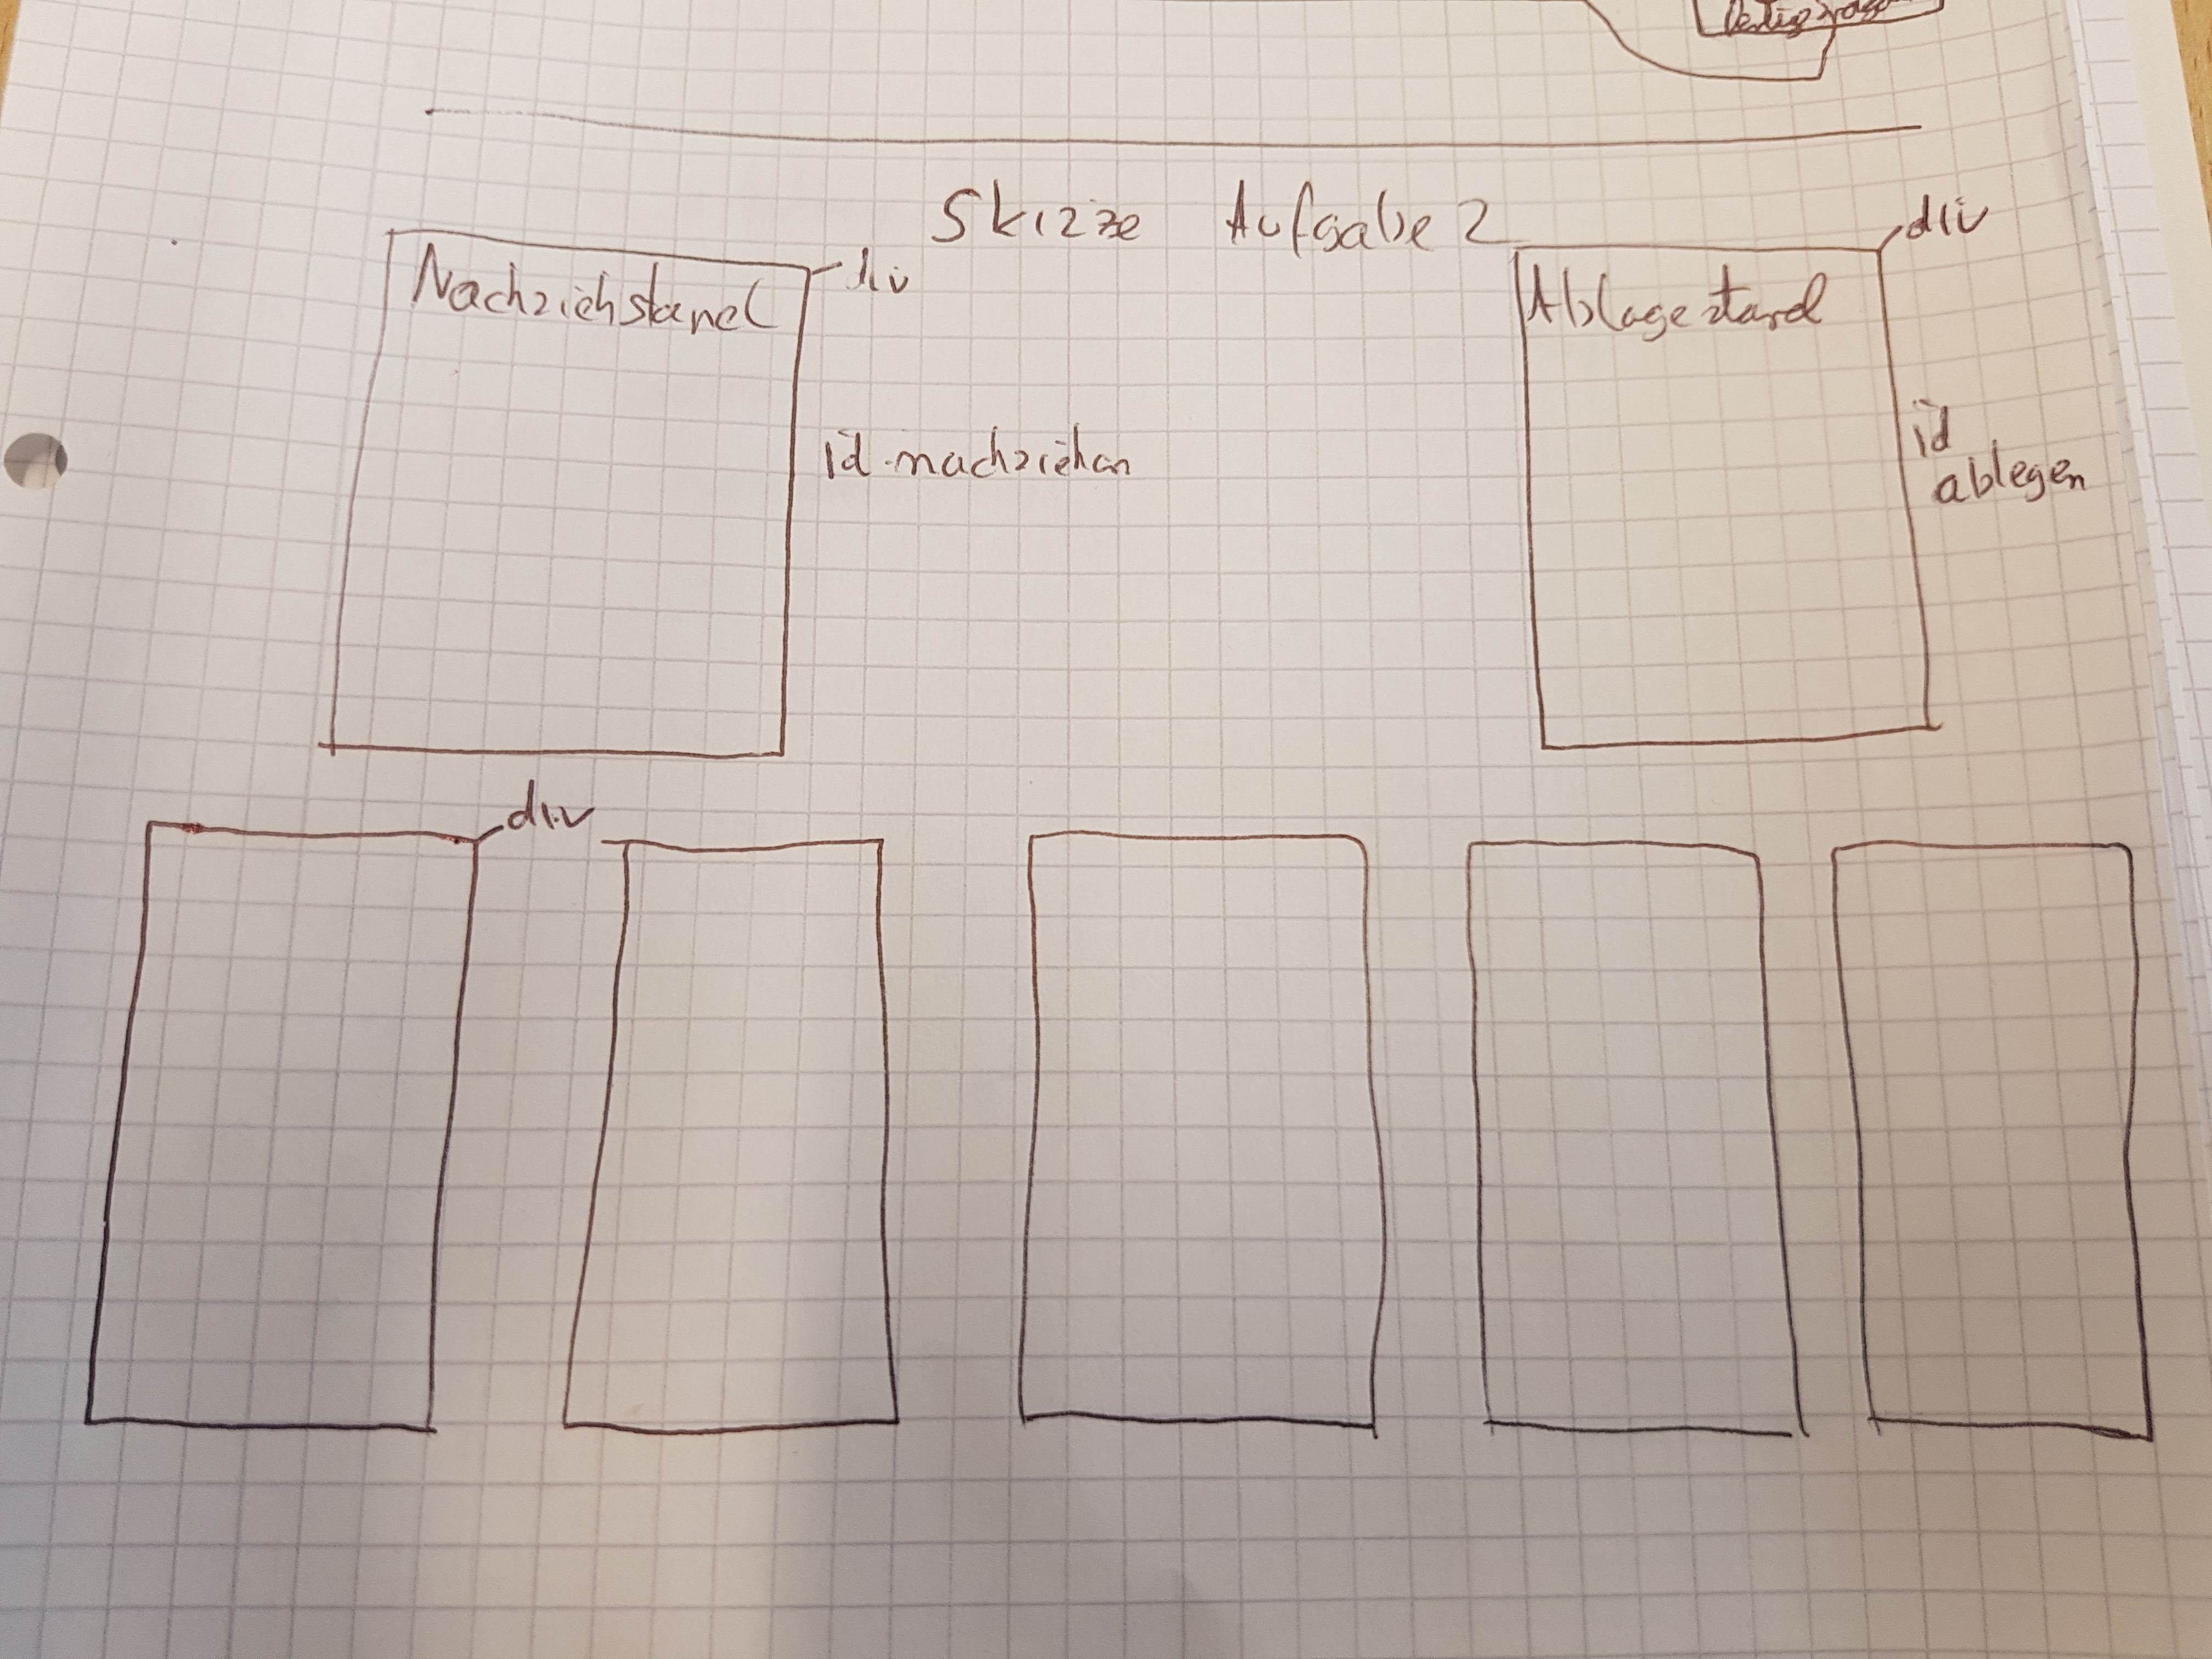 Skizze Aufgabe 2
Nachziehstapel
div
id nachziehen
Ablagestand
div
id
ablegen
div